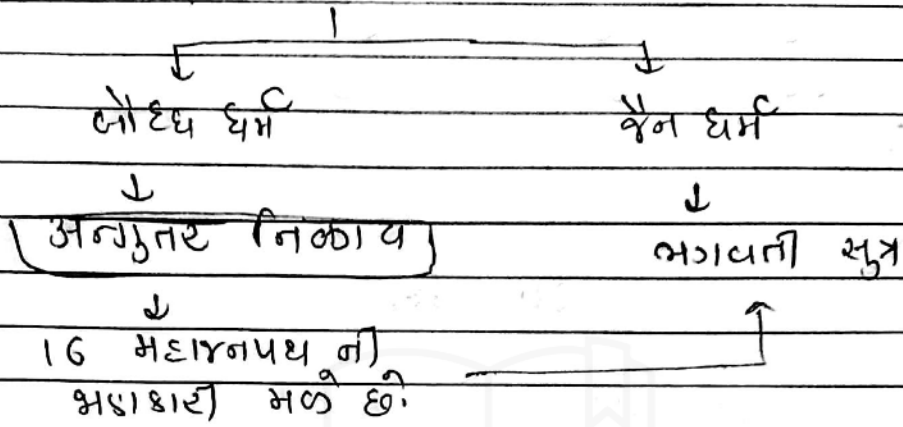 બૌદ્ધ ધર્મ જૈન ધર્મ
અન્ગુતર નિકાય ભગવતી સુત્ર
16 મહાજનપથ ની
મળે છે.